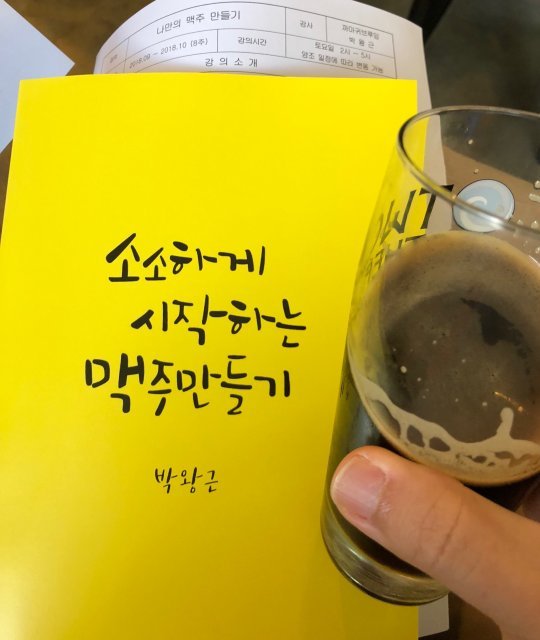 나만의 맥주 만들기
강사
까마귀브루잉
박 왕 근
2018.09 ~ 2018.10 (8주)
강의시간
토요일 2시 ~ 5시
양조 일정에 따라 변동 가능
강 의 소 개
소소하게
시작하는
맥주만들기
박왕근